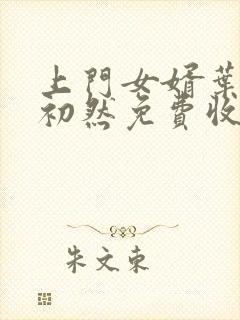 上門女婿葉
初然免費收
朱文東